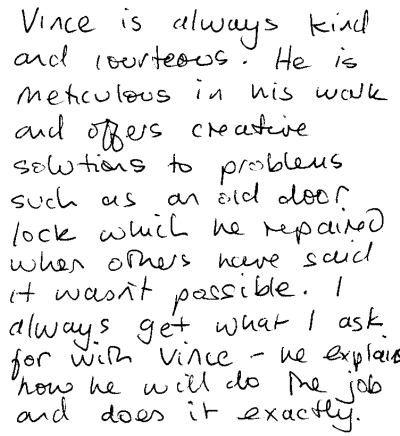 Vince is always kind
and courteous. He is
meticulous in his work
and offers creative
solutions to problems
such as an old door
lock which he repaired
when others have said
it wasn't possible. I
always get what I ask
for with Vince - he explai
how he will do the job
and does it exactly.